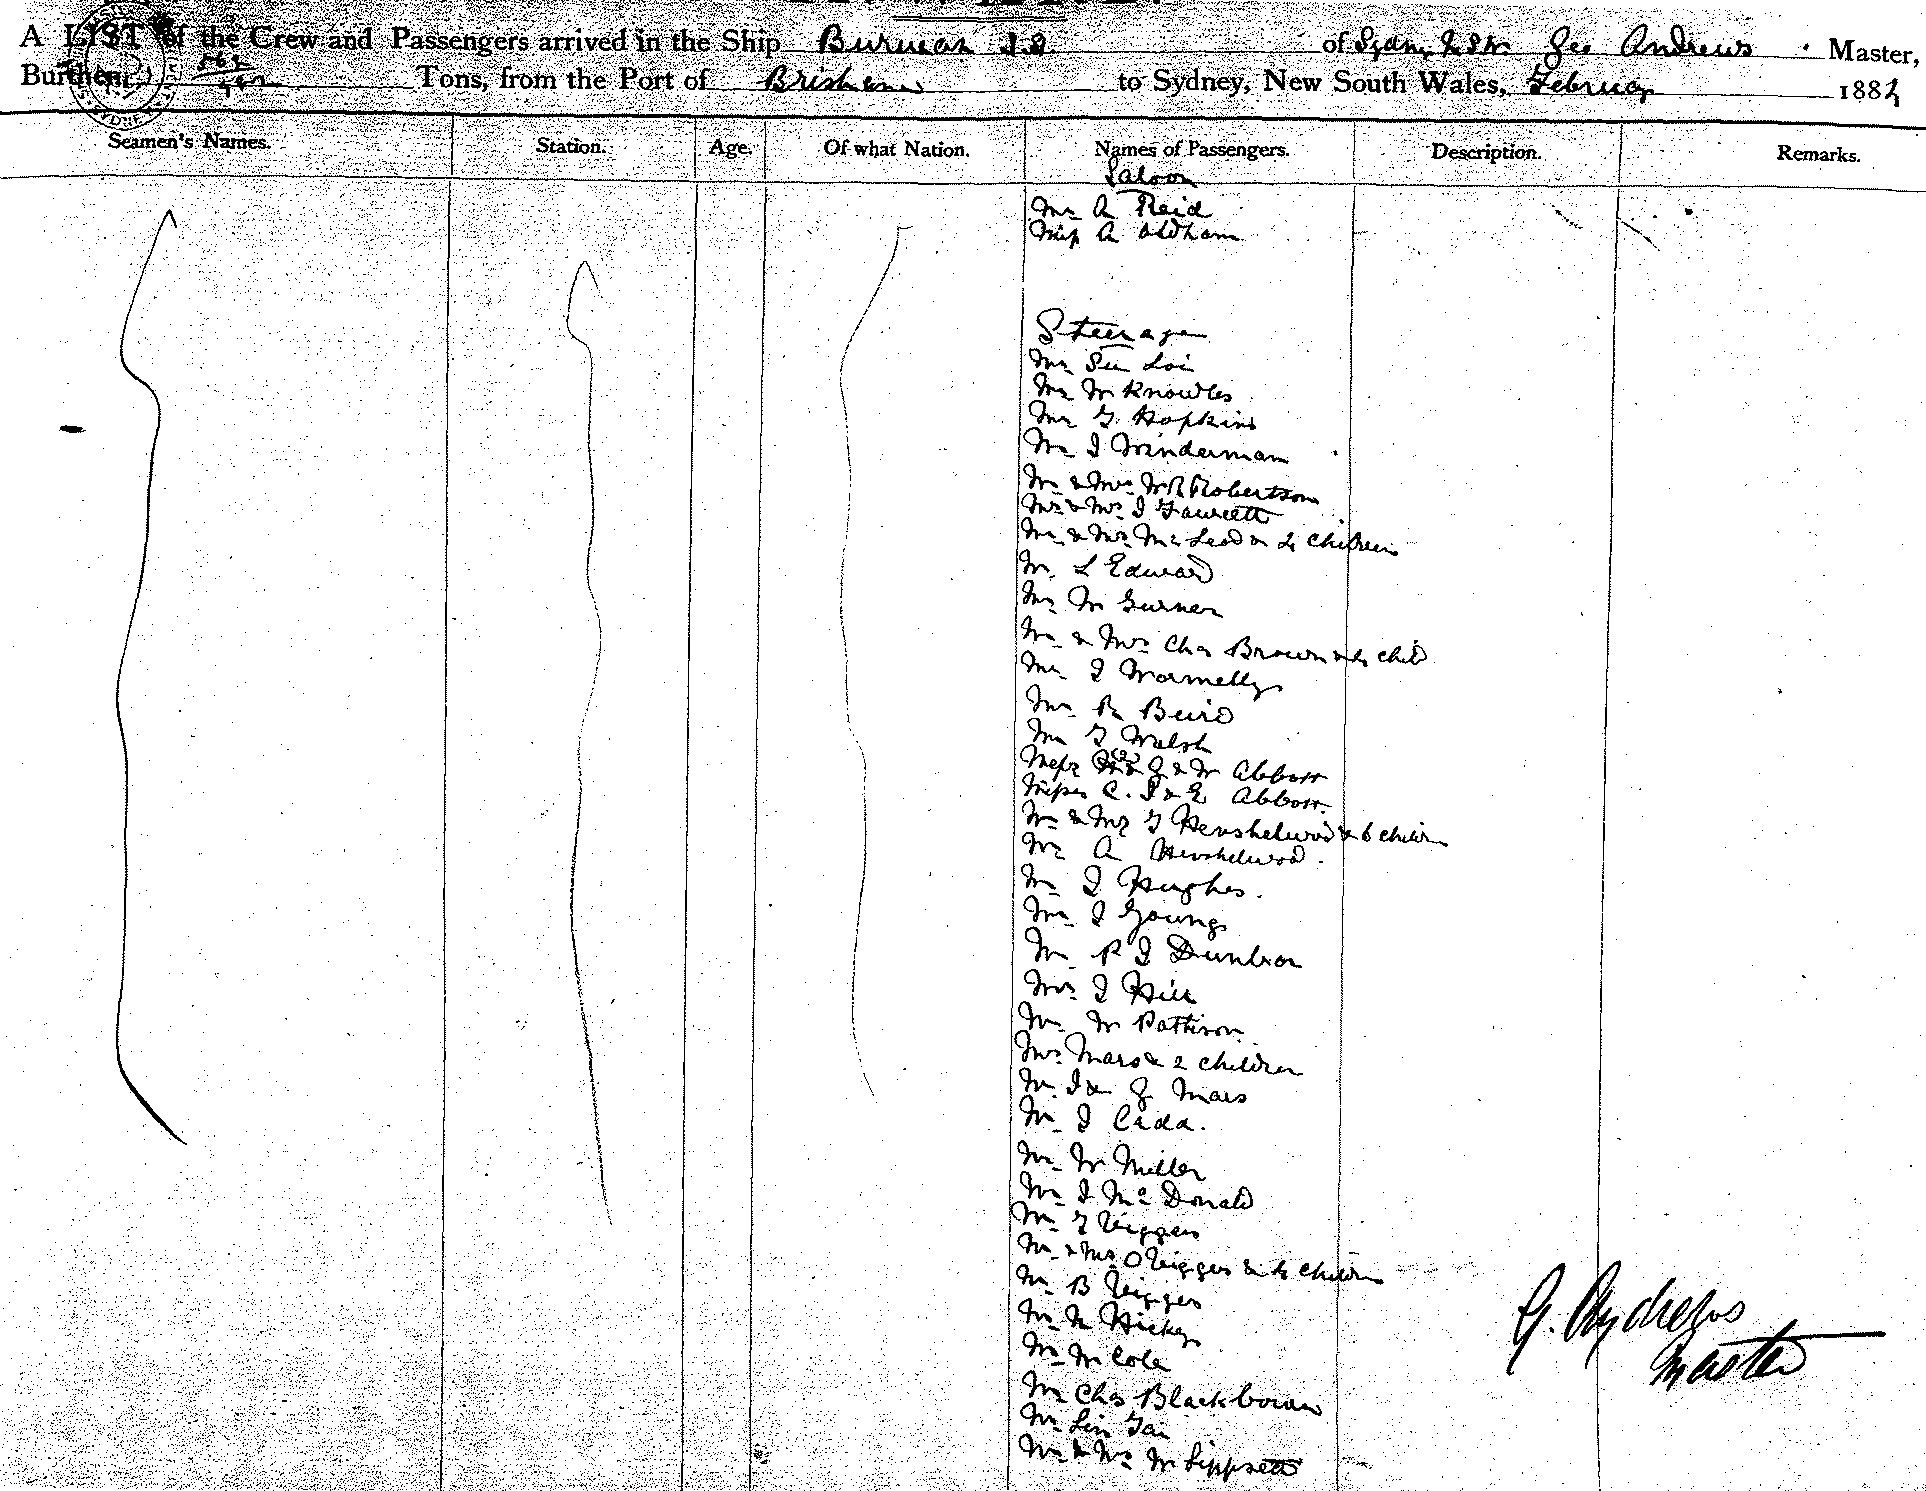 A LIST of the Crew and Passengers arrived in the Ship Burwah S.S. of Sydney N.S.W Geo Andrews Master,
Burthen, Tons, from the Port of Brisbane to Sydney, New South Wales, February 1883
Seamen's Names. Station. Age. Of what Nation. Names of Passengers. Description. Remarks.
Saloon
Mr A Reid
Miss A Oldham
Steerage
Mr Loi
Mr W Knowles
Mr G Hopkins
Mr J Winderman
Mr & Mrs W R Robertson
Mr & Mrs J Fawcett
Mr & Mrs McLeod & 4 Children
Mr L Edward
Mr W Gurner
Mr & Mrs Chas Brown & 4 child
Mr J Wormelly
Mr R Beird
Mr T Walsh
Messrs & W Abbott
Misses C. J & E Abbott
Mr & Mrs T Henshelwood & 6 childrn
Mr A Henshelwood.
Mr J Hughes.
Mr J Youngs
Mr R J Dunbar
Mrs J Hill
Mr W Pattison.
Mrs Mars & 2 children
Mr J & Mars
Mr J Cada.
Mr W Miller
Mr J McDonald
Mr Viggers
Mr & Mrs O Viggers & 4 childrn
Mr B Viggers
Mr Hickey
Mr W Cole
Mr Chas Blackbourn
Mr
Mr & Mrs W Lippsett
G. Andrews
Master